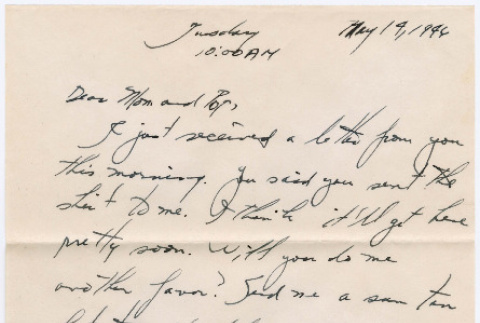 Tuesday May 14, 1946
10:00 AM
Dear Mom and Pop,
I just received a letter from you
this morning. You said you sent the
shirt to me. I think it'll get here
pretty soon. Will you do me
another favor? Send me a sun tan